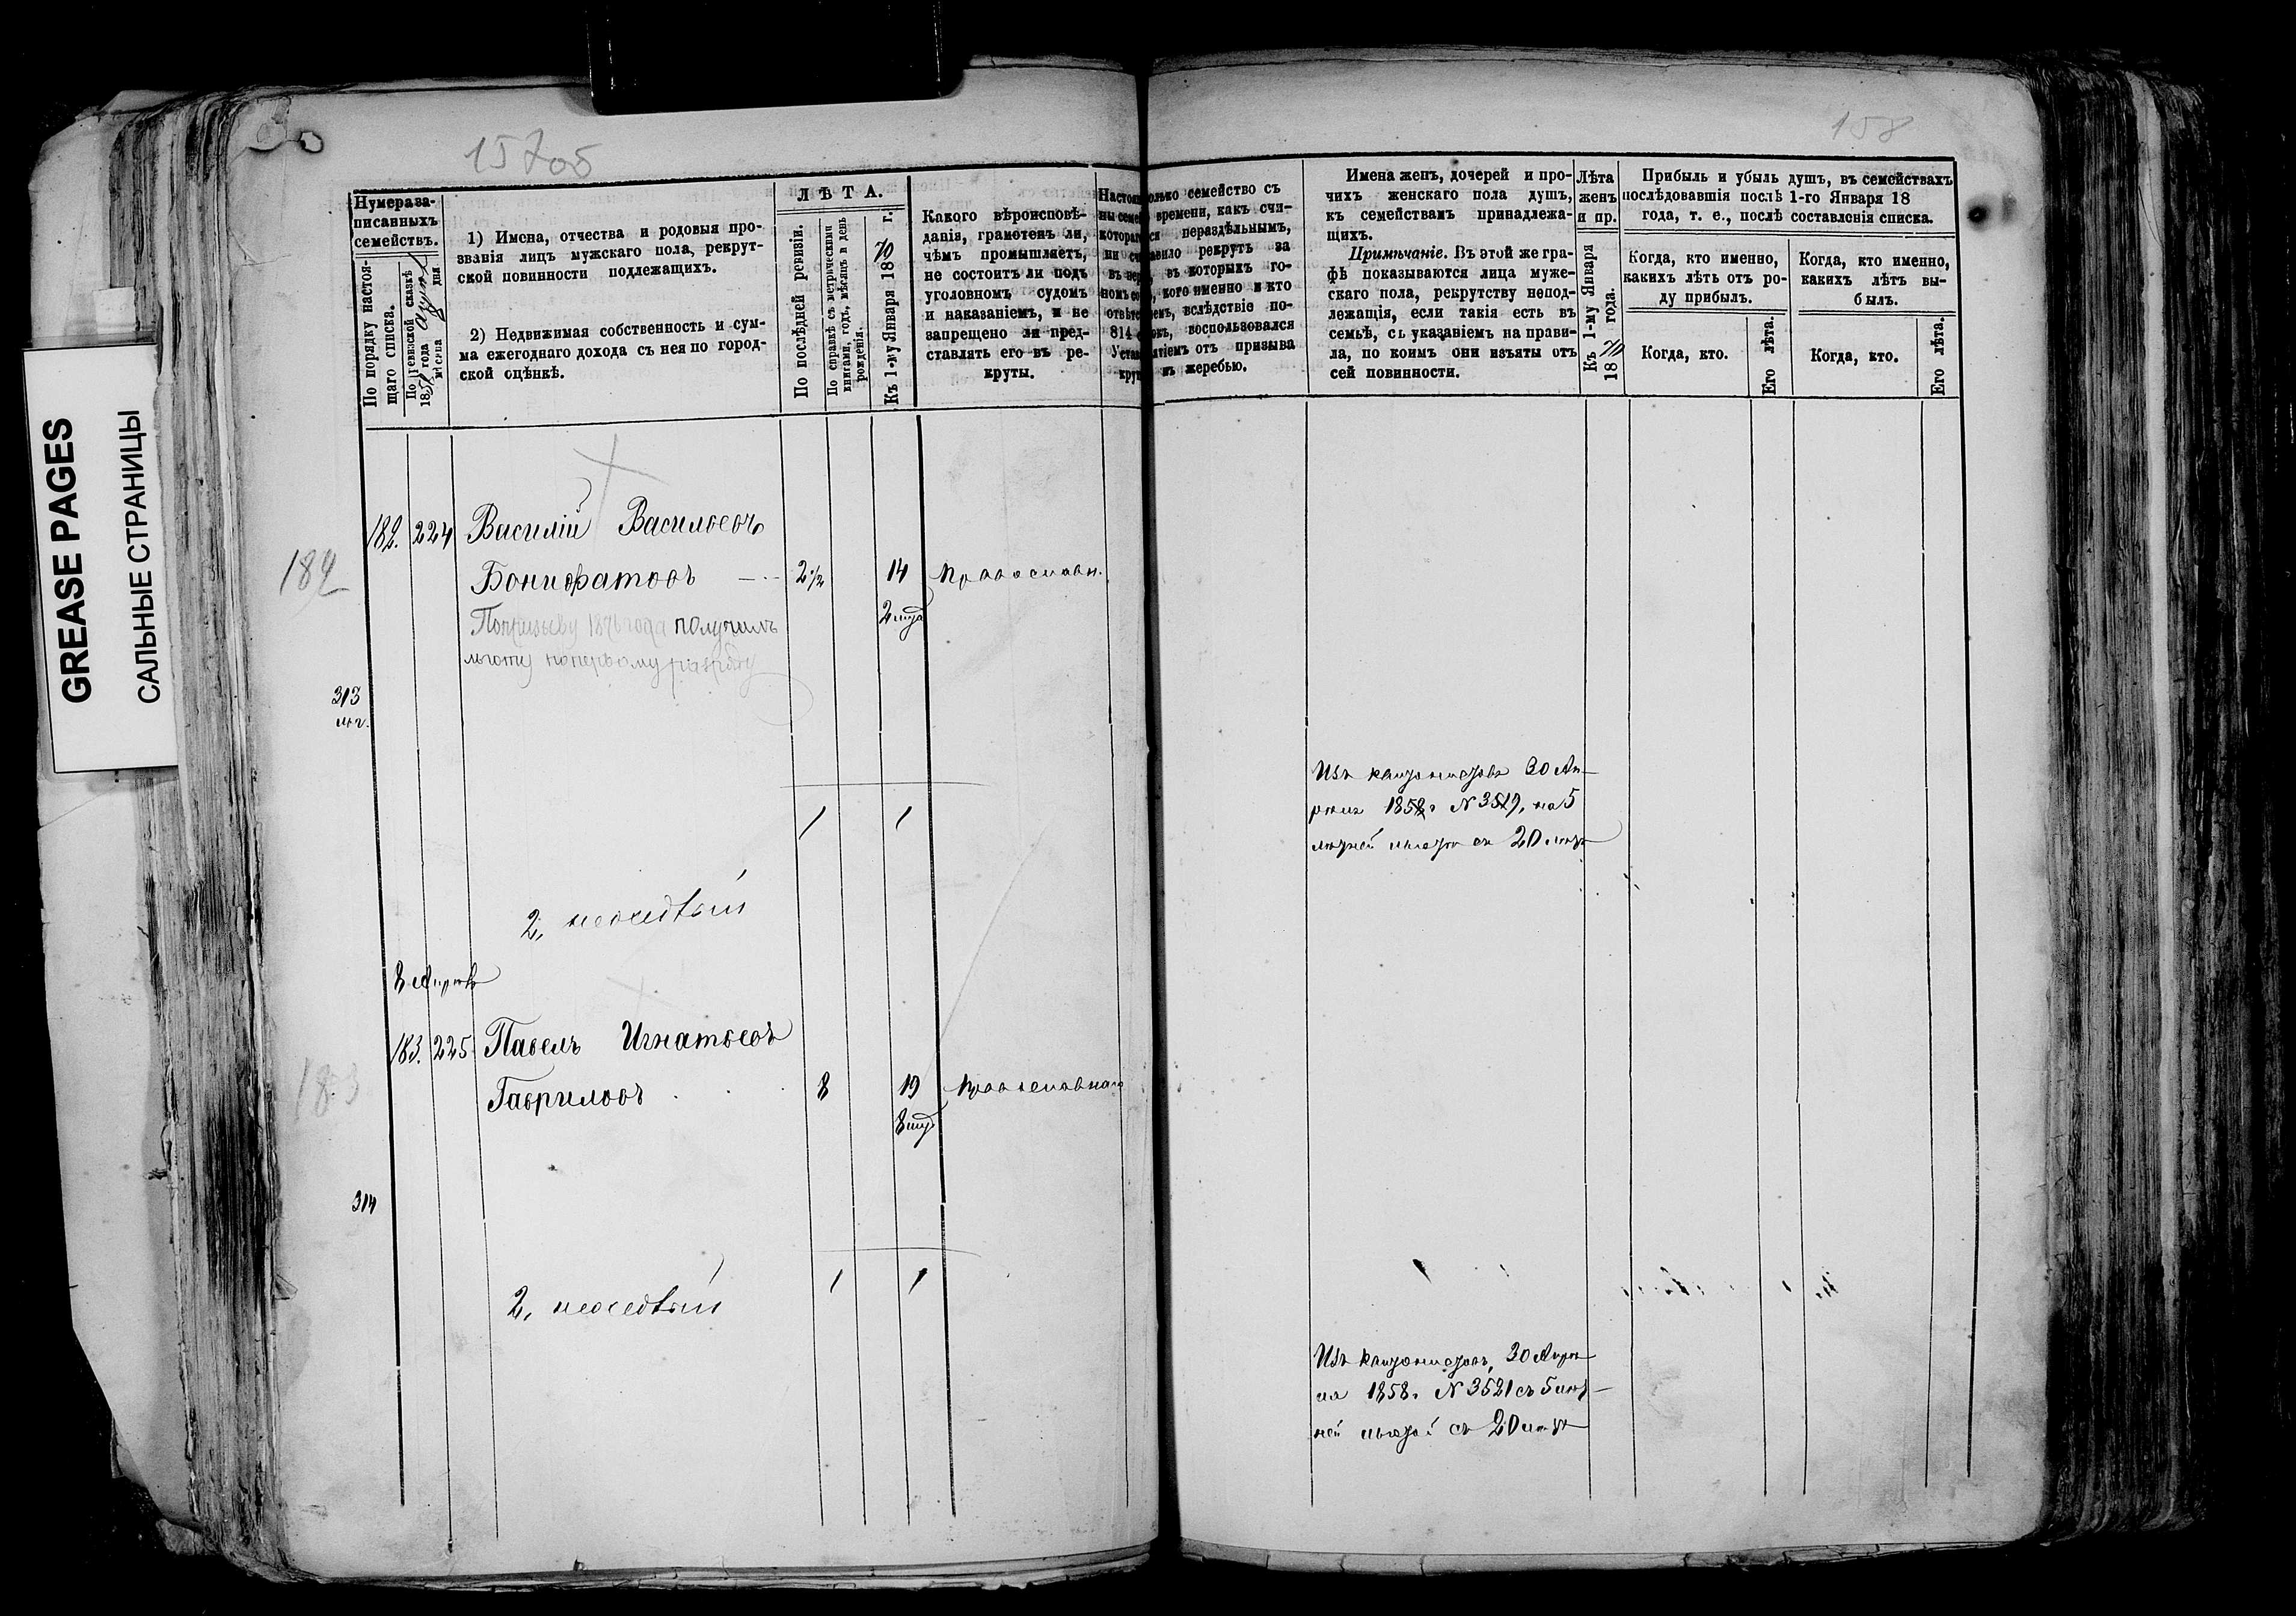 GREASE PAGES
САЛЬНЫЕ СТРАНИЦЫ
157об
158
Нумера за-
писанныхъ
семействъ.
По порядку настоя-
щаго списка.
По ревизской сказкѣ
185 года
мѣсяца 8 дня
1) Имена, отчества и родовыя про-
званія лицъ мужскаго пола, рекрут-
ской повинности подлежащихъ.
2) Недвижимая собственность и сум-
ма ежегоднаго дохода съ нея по город-
ской оцѣнкѣ.
ЛѢТА.
По послѣдней ревизіи.
По справкѣ съ метрическими
книгами, годъ, мѣсяцъ и день
рожденія.
Къ 1-му Января 1870 г.
Какого вѣроисповѣ-
данія, грамотенъ ли,
чѣмъ промышляетъ,
не состоитъ ли подъ
уголовномъ судомъ
и наказаніемъ, и не
запрещено ли пред-
ставлять его въ ре-
круты.
семейство съ
времени, какъ счи-
нераздѣльнымъ,
рекрутъ за
въ которыхъ го-
кого именно и кто
вслѣдствіе по-
814 воспользовался
отъ призыва
къ жеребью.
Имена женъ, дочерей и про-
чихъ женскаго пола душъ,
къ семействамъ принадлежа-
щихъ.
Примѣчаніе. Въ этой же гра-
фѣ показываются лица муже-
скаго пола, рекрутству непод-
лежащія, если такія есть въ
семьѣ, съ указаніемъ на прави-
ла, по коимъ они изъяты отъ
сей повинности.
Лѣта
женъ
и пр.
Къ 1-му Января
1870 года.
Прибыль и убыль душъ, въ семействахъ
послѣдовавшія послѣ 1-го Января 18
года, т. е., послѣ составленія списка.
Когда, кто именно,
какихъ лѣтъ отъ ро-
ду прибылъ.
Когда, кто именно,
какихъ лѣтъ вы-
былъ.
Когда, кто.
Его лѣта.
Когда, кто.
Его лѣта.
182. 224 Василій Васильевъ
182
Бонифатовъ 2½ 14 Православн.
По призыву 1876 года получилъ
льготу по первому разряду
313
Изъ кантонистовъ 30 Ап-
рѣля 1858 г N 3519, на 5
1 1
20 лѣтъ
2, неосѣдлый
8 Апрѣля
183. 225. Павелъ Игнатьевъ
183
Гавриловъ 8 19 Православнаго
314
1 1
2, неосѣдлый
Изъ кантонистовъ, 30 Апрѣ-
ля 1858 г N 3521 съ 5 лѣт-
ней льготой съ 20 лѣтъ